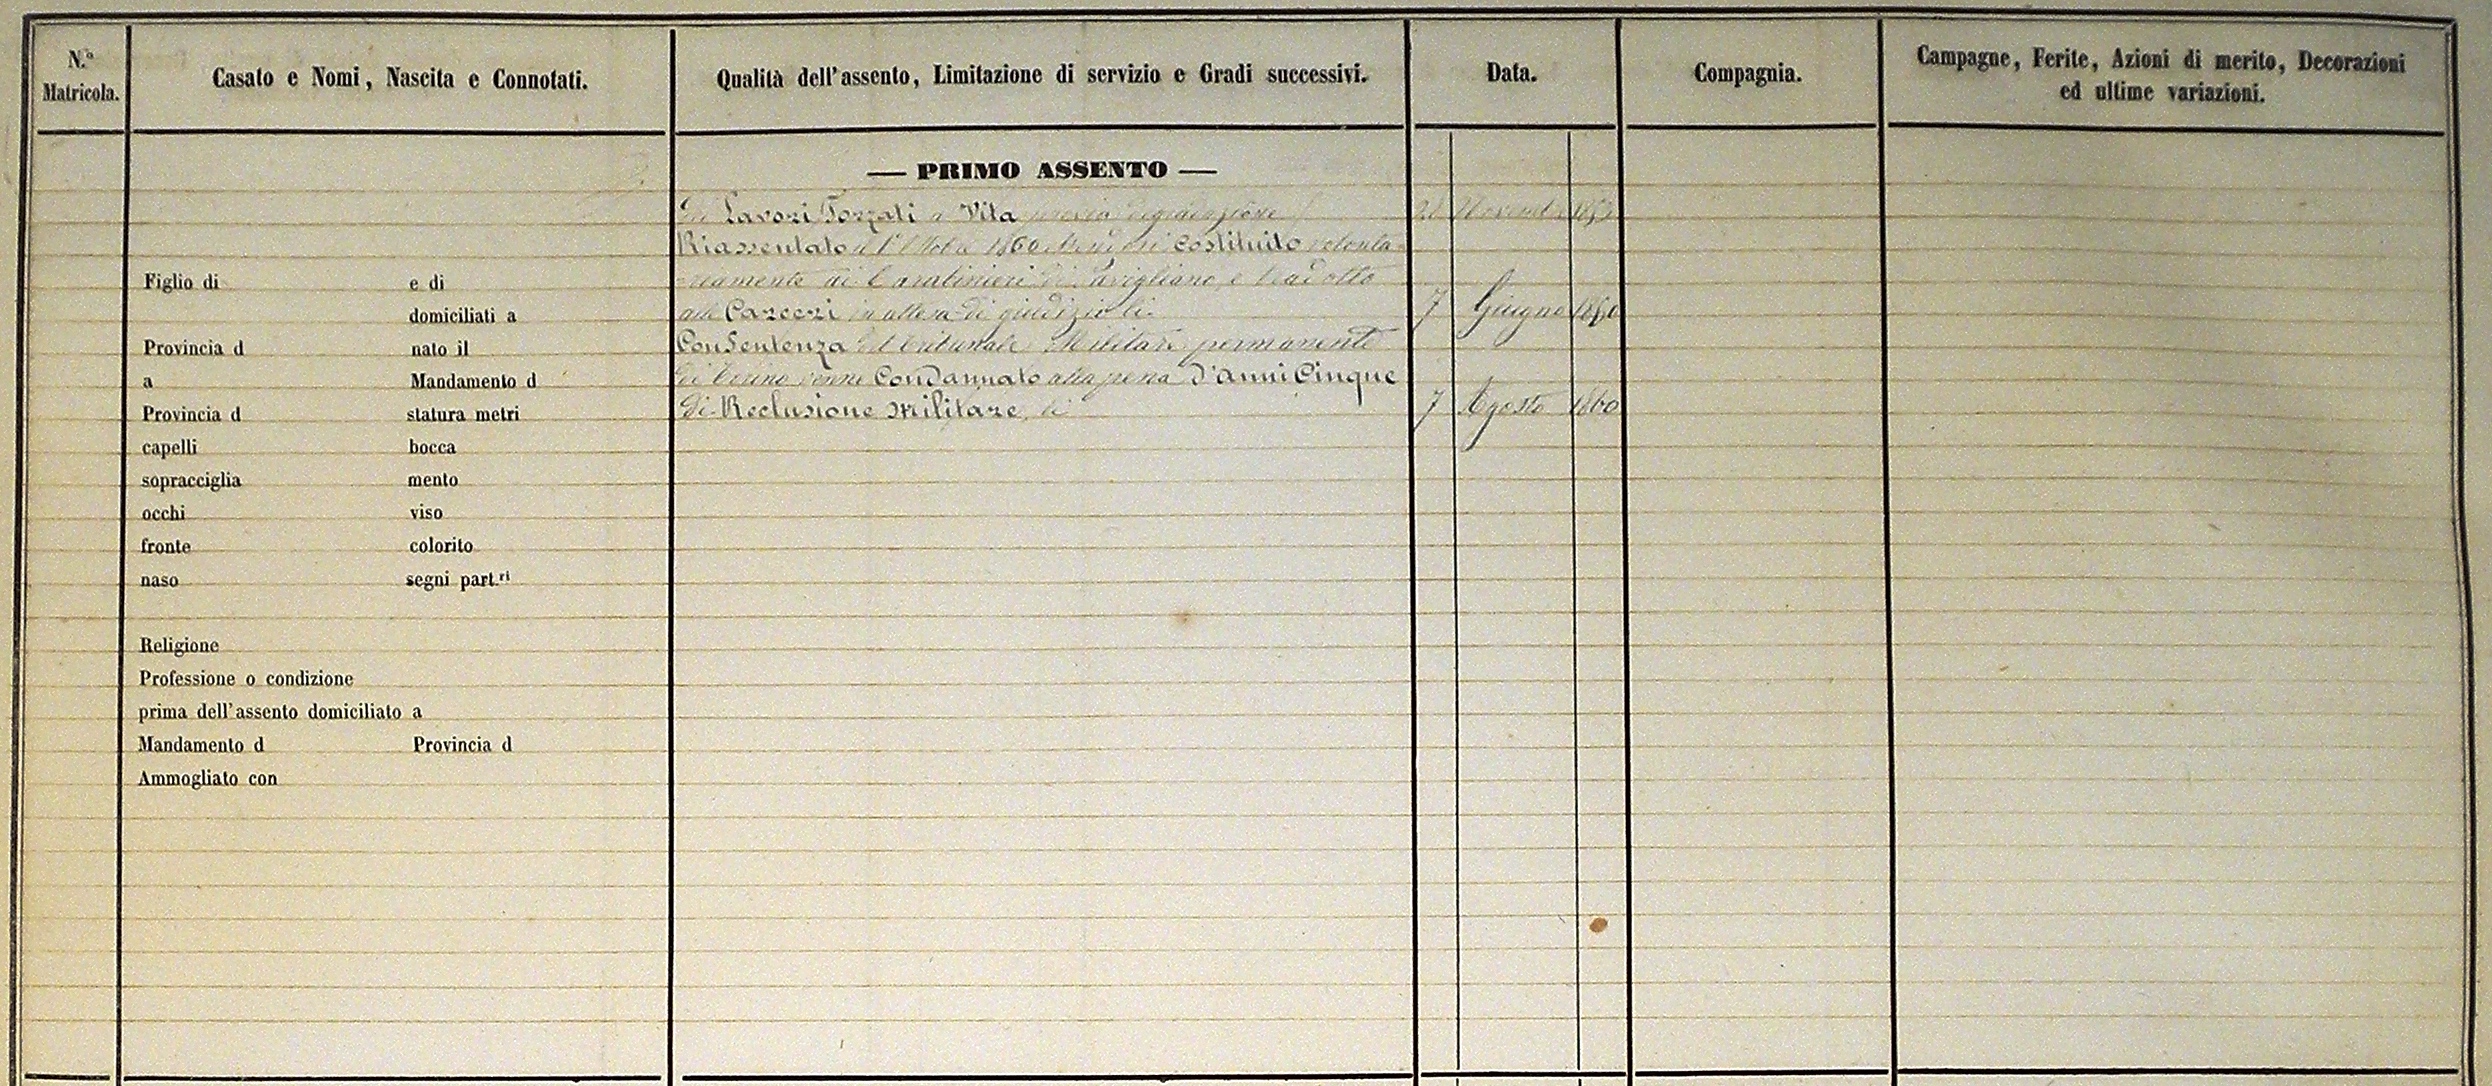 N.º Matricola.
Casato e Nomi, Nascita e Connotati.
Qualità dell'assento, Limitazione di servizio e Gradi successivi.
Data.
Compagnia.
Campagne, Ferite, Azioni di merito, Decorazioni
ed ultime variazioni.
— PRIMO ASSENTO —
Lavori Forzati a Vita previa degradazione Novembre
Riassentato 1860 costituito volonta
riamente ai Carabinieri di Savigliano, e tradotto
alle Carceri in attesa di giudizio li 7 Giugno 1860
Con Sentenza del Tribunale Militare permanente
di Torino venne Condannato alla pena d'anni Cinque
di Reclusione Militare, li 7 Agosto 1860
Figlio di e di
domiciliati a
Provincia d nato il
a Mandamento d
Provincia d statura metri
capelli bocca
sopracciglia mento
occhi viso
fronte colorito
naso segni part.ri
Religione
Professione o condizione
prima dell'assento domiciliato a
Mandamento d Provincia d
Ammogliato con